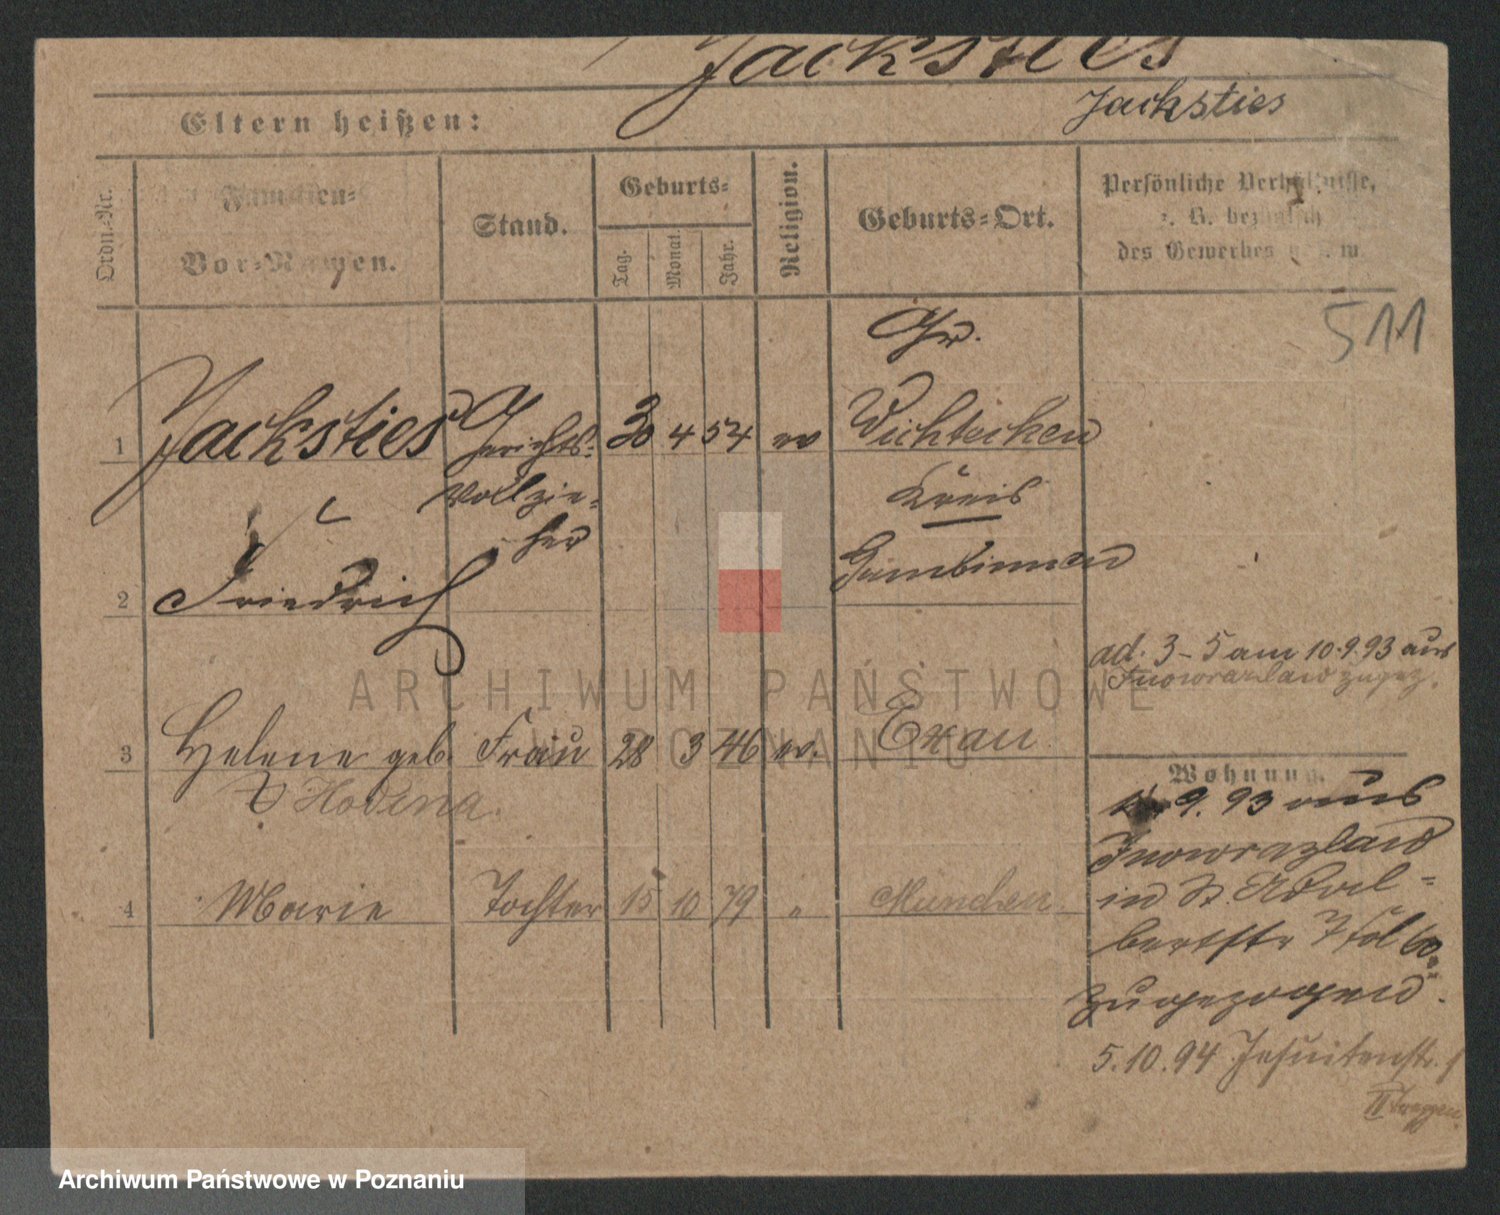 Jacksties
Jacksties
Eltern heißen:
Ordn.-Nr.
Familien-
Vor-Namen.
Stand.
Geburts-
Tag.
Monat.
Jahr.
Religion.
Geburts-Ort.
Persönliche Verhältnisse,
z. B. bezüglich
des Gewerbes u. s. w.
511
Gr.
1 Jacksties Gerichts- 30 4 54 ev Wichtecken
Vollzie- Kreis
her Gumbinnen
2 Friedrich
ad. 3-5 am 10.9.93 aus
Inowrazlaw zugez.
3 Helene geb. Frau 28 3 46 ev. Exau
Hodena.
Wohnung.
9.93 aus
Inowrazlaw
in St. Adal-
bertstr
zugezogen.
4 Marie Tochter 15 10 79 " München
5.10.94 Jesuitenstr.
II Treppen
ARCHIWUM PAŃSTWOWE
W POZNANIU
Archiwum Państwowe w Poznaniu